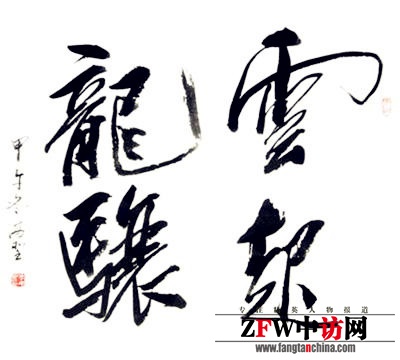 雲起
龍驤
甲午冬
专注 英人物报道
ZFW中访网
www.fangtanchina.com